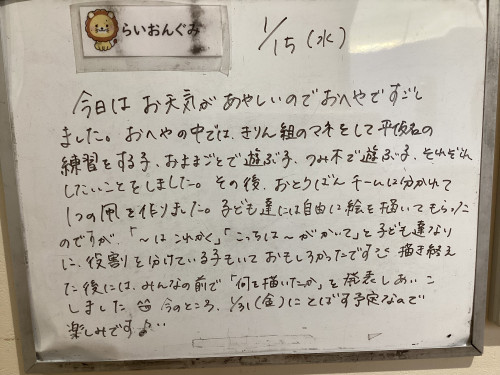 らいおんぐみ
1/15(水)
今日は お天気が あやしいので おへやですごし
ました。おへやの中では、きりん組のマネをして平仮名の
練習をする子、おままごとで遊ぶ子、つみ木で遊ぶ子、それぞれ
したいことをしました。その後、おとうばんチームに分かれて
1つの凧を作りました。子ども達には自由に絵を描いてもらった
のですが、「〜は これかく」「こっちは〜が かいて」と子ども達なり
に、役割を分けている子もいて おもしろかったです 描き終え
た後には、みんなの前で「何を描いたか」を発表しあいこ
しました 今のところ、1/31(金)にとばす予定なので
楽しみです♪